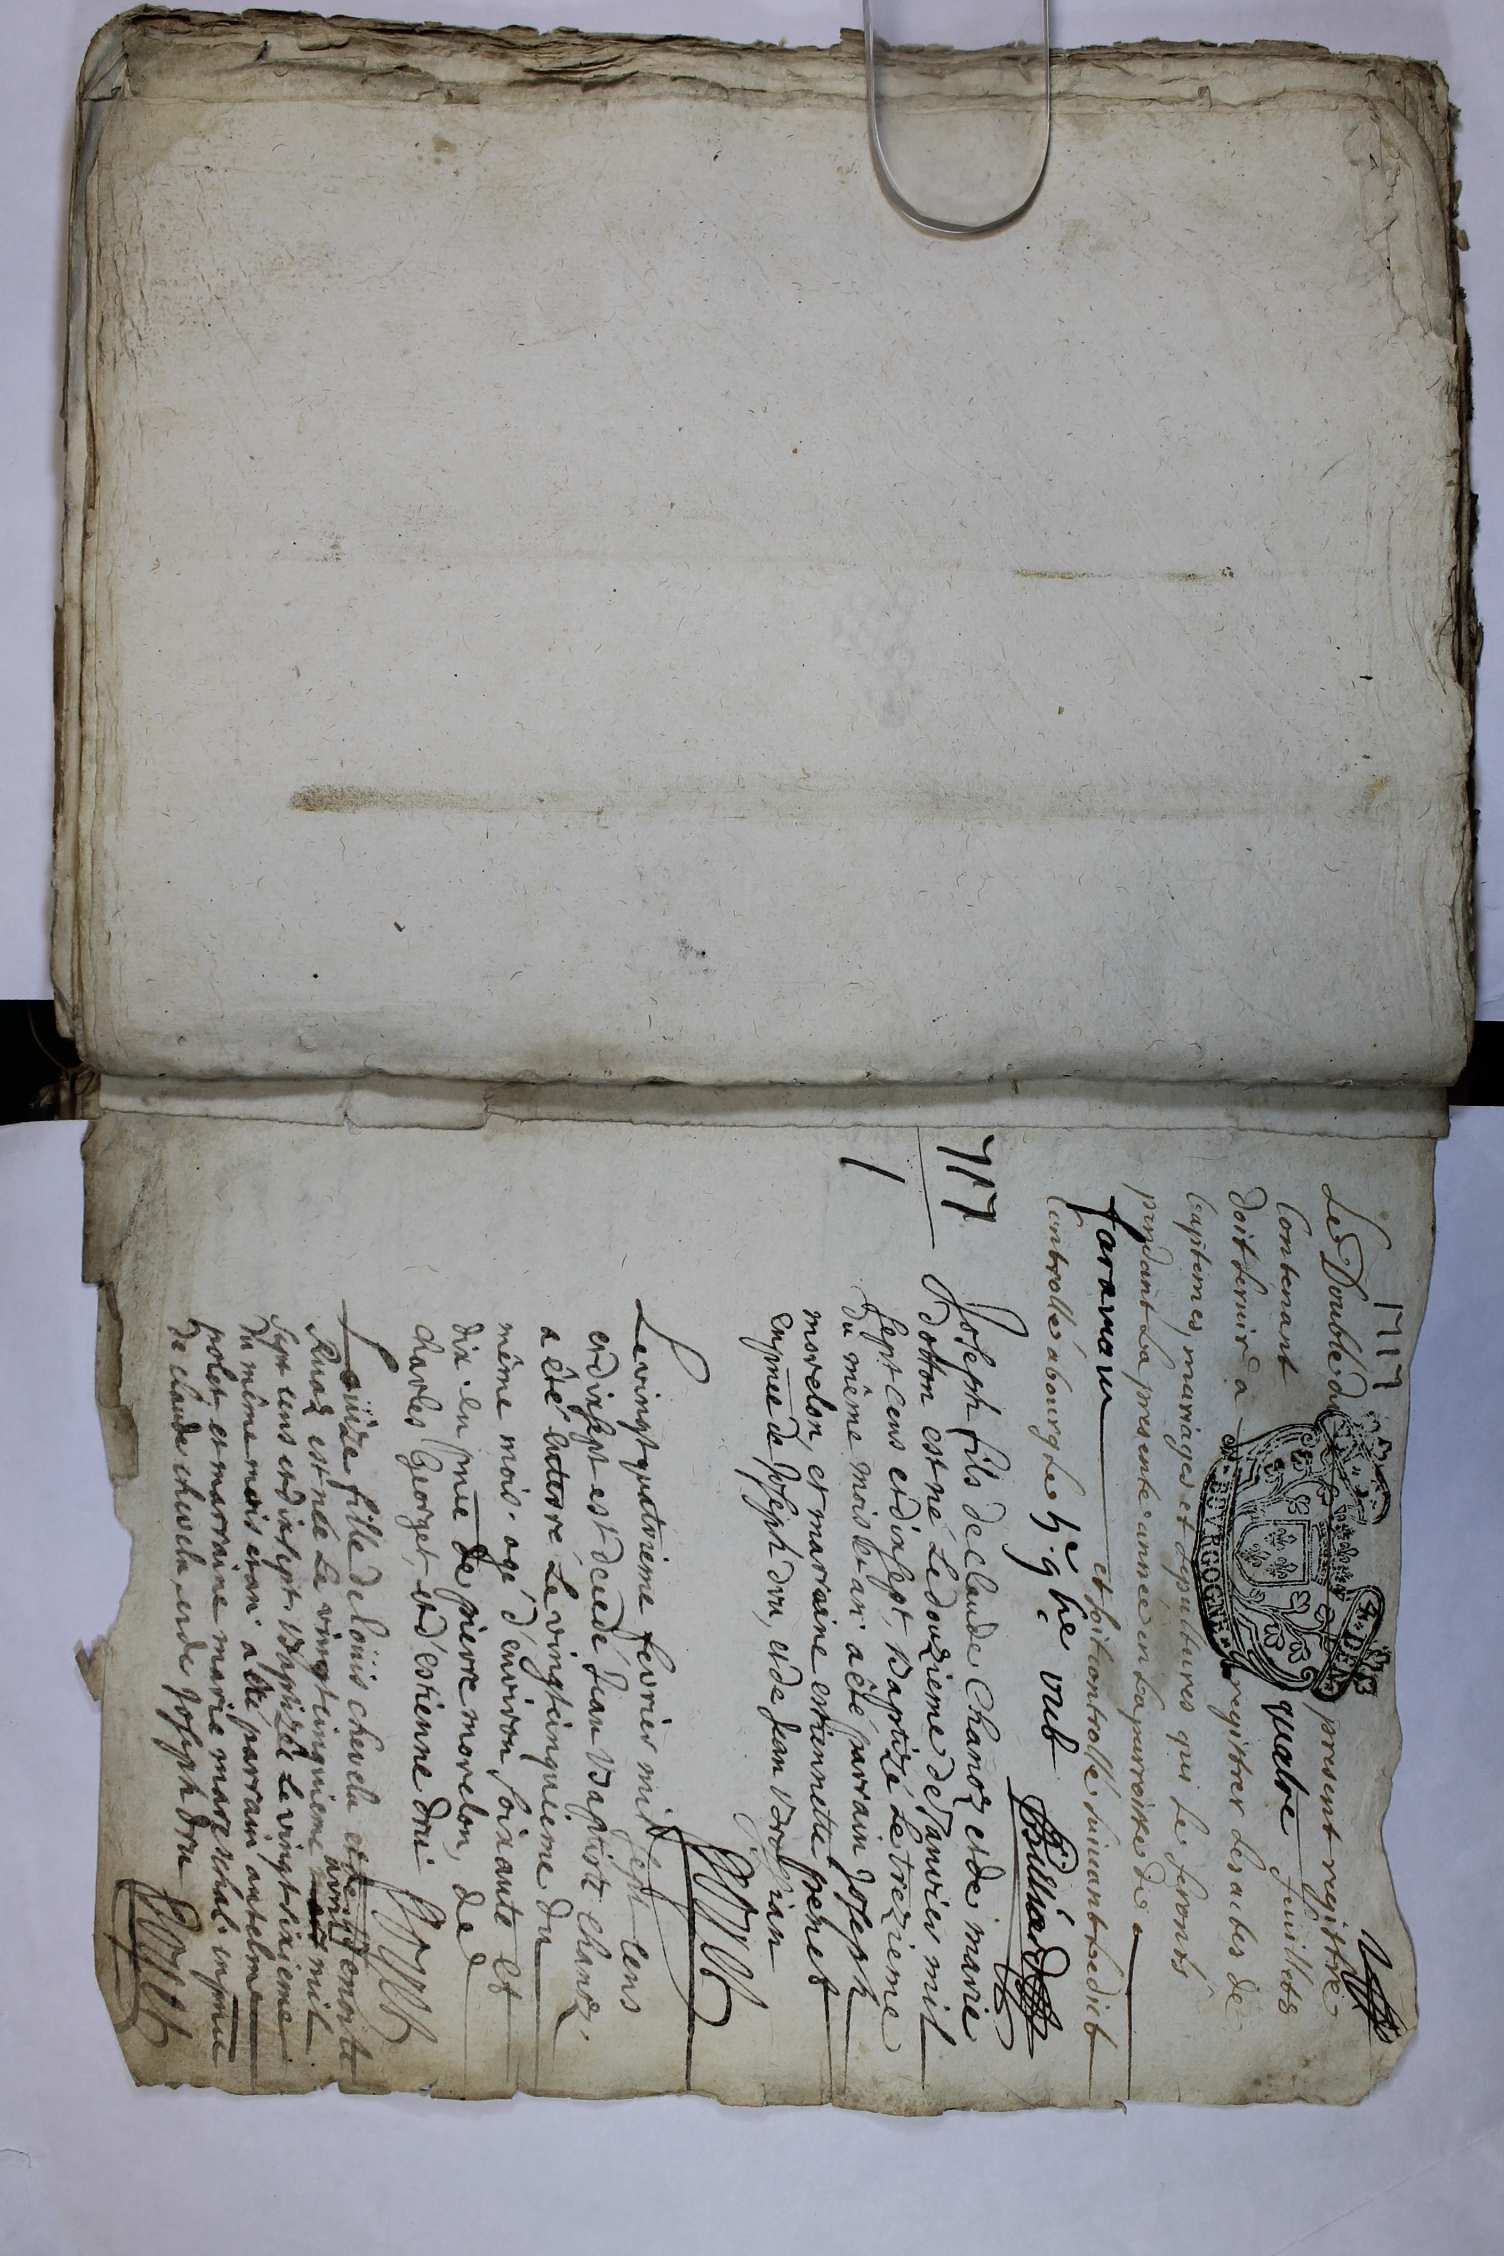 1717
Le Double du present registre
Contenant quatre feuillets
doit servir a registrer les actes de
baptemes, mariages et sepultures qui se feront
pendant la presente année en la parroisse de
faramau et soit controllé suivant ledict
Controllé a bourg le
717
1
Joseph fils de claude Chanoz et de marie
Botton est né le douzieme de Janvier mil
sept cens et dixsept, Baptizé le trezieme
du même mois et an a été parrain Joseph
morelon, et marraine estiennette
en pnce de Joseph dru, et de Jean
Le vingt quatrieme fevrier mil sept cens
et dixsept est decedé Jean Baptiste Chanoz,
a été enterré le vingtcinquieme du
même mois agé d'environ soixante et
dix. en pnce de pierre morelon, de
charles Georget, et d'estienne dru
Loüize fille de loüis chevelu et
est née le vingtcinquieme avril mil
sept cens et dixsept Baptizée le vingtsixieme
du même mois et an a été parrain antelme
polet et marraine marie mareschal en pnce
de claude chevelu, et de Joseph dru
DE BOURGOGNE